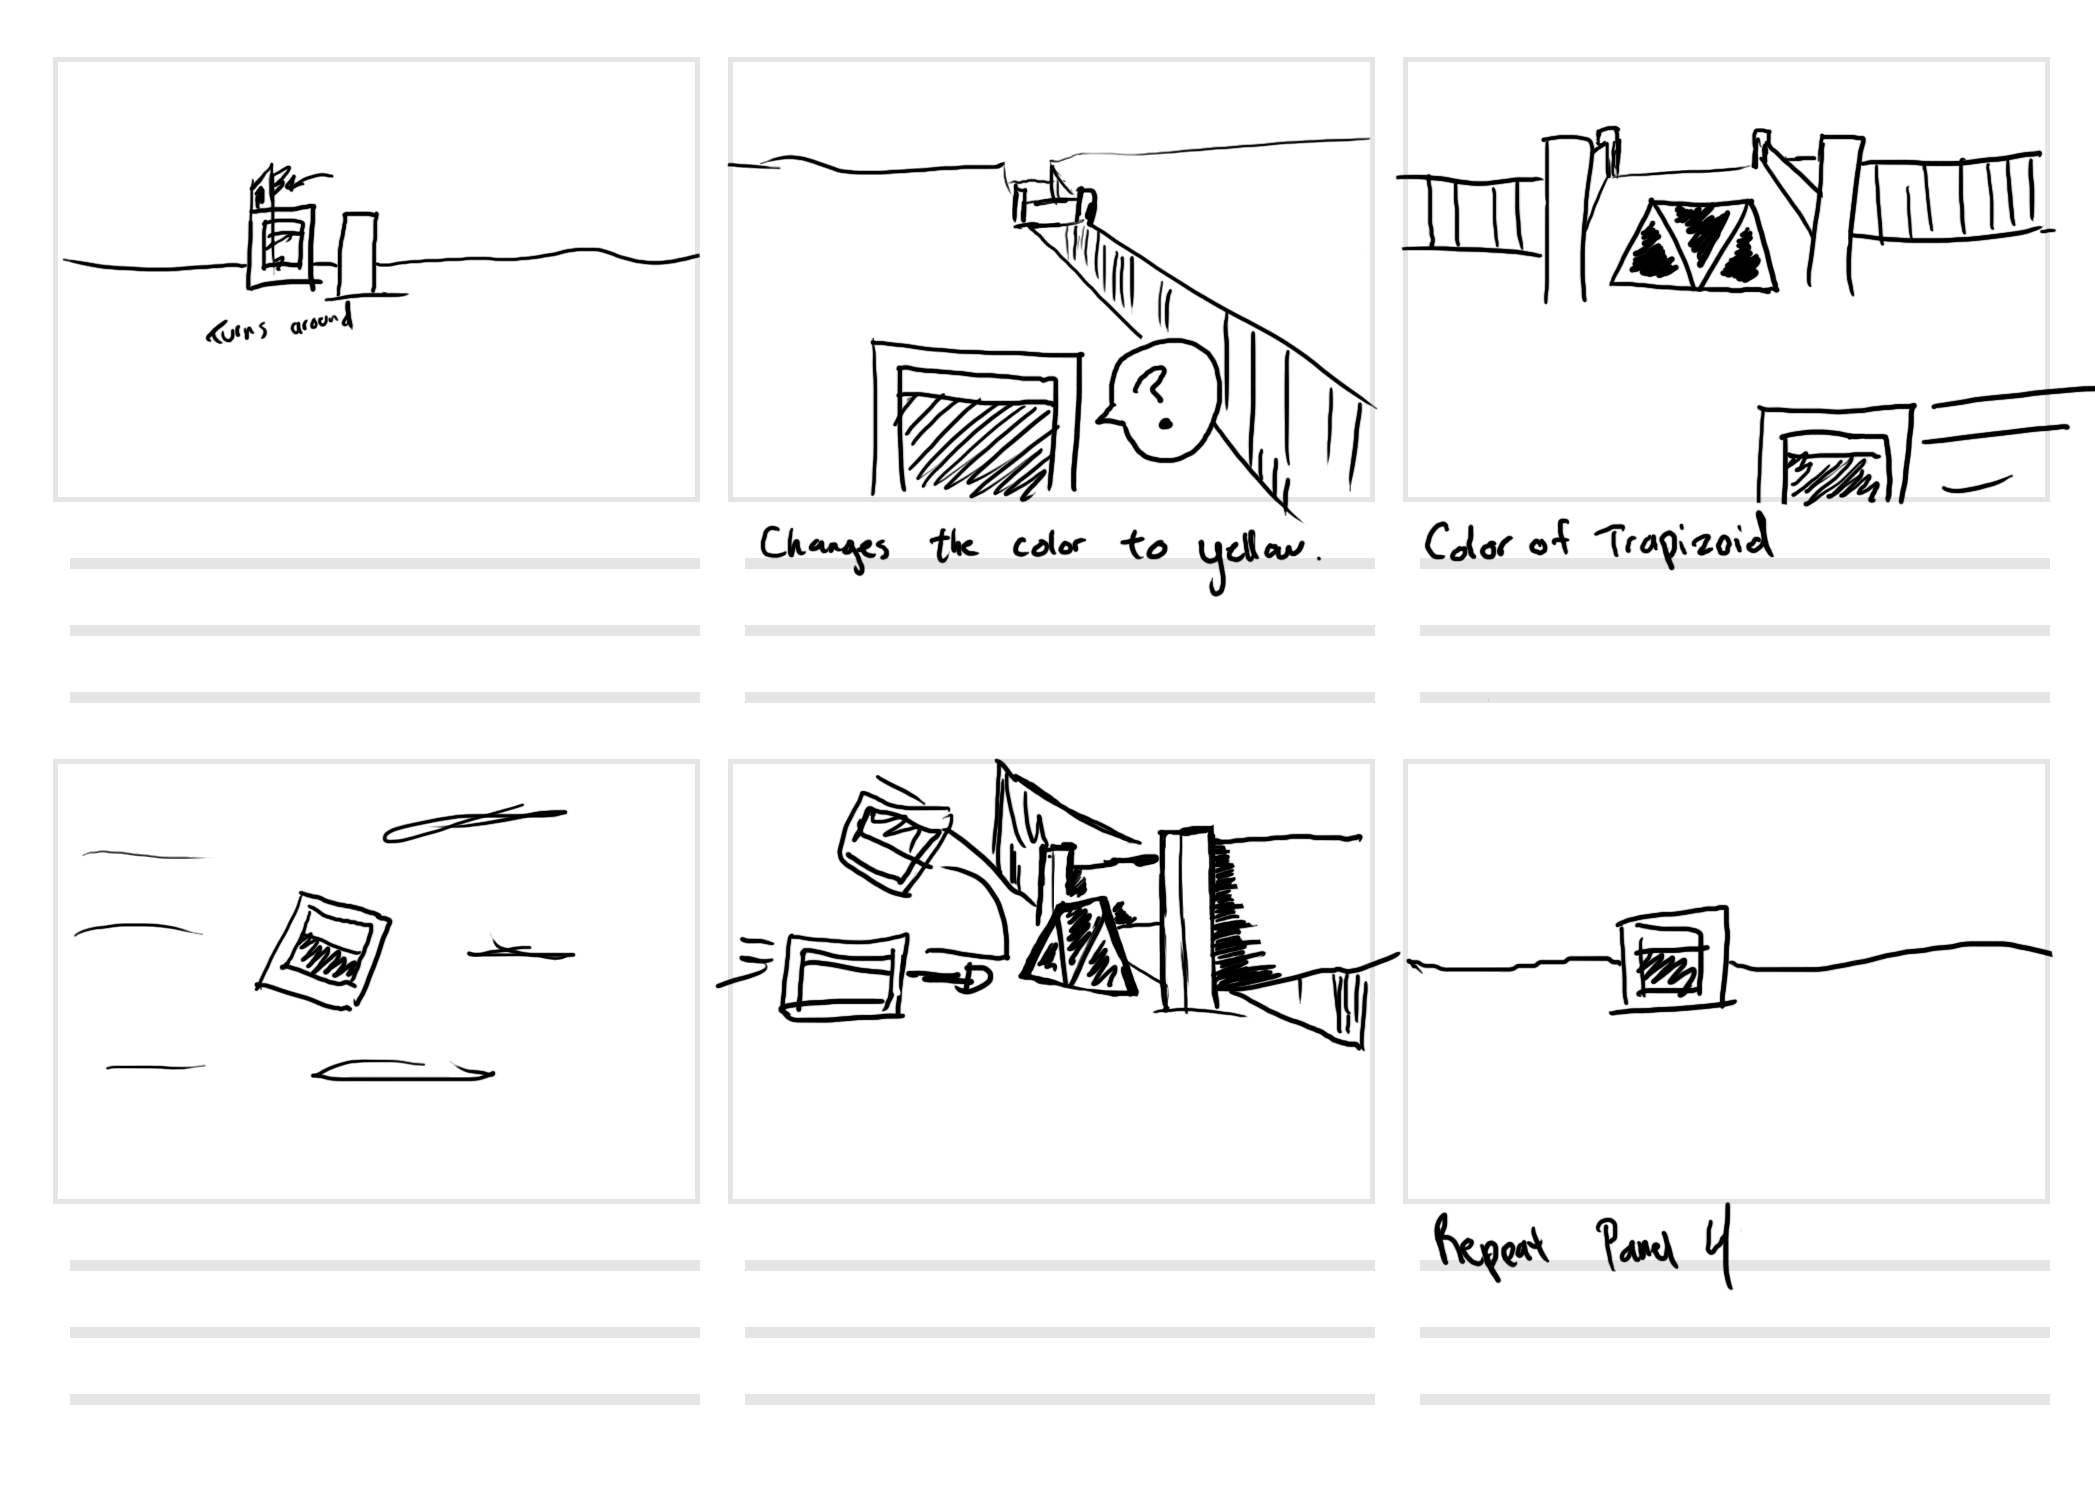 Turns around
?
Changes the color to yellow.
Color of Trapizoid
Repeat Panel 4